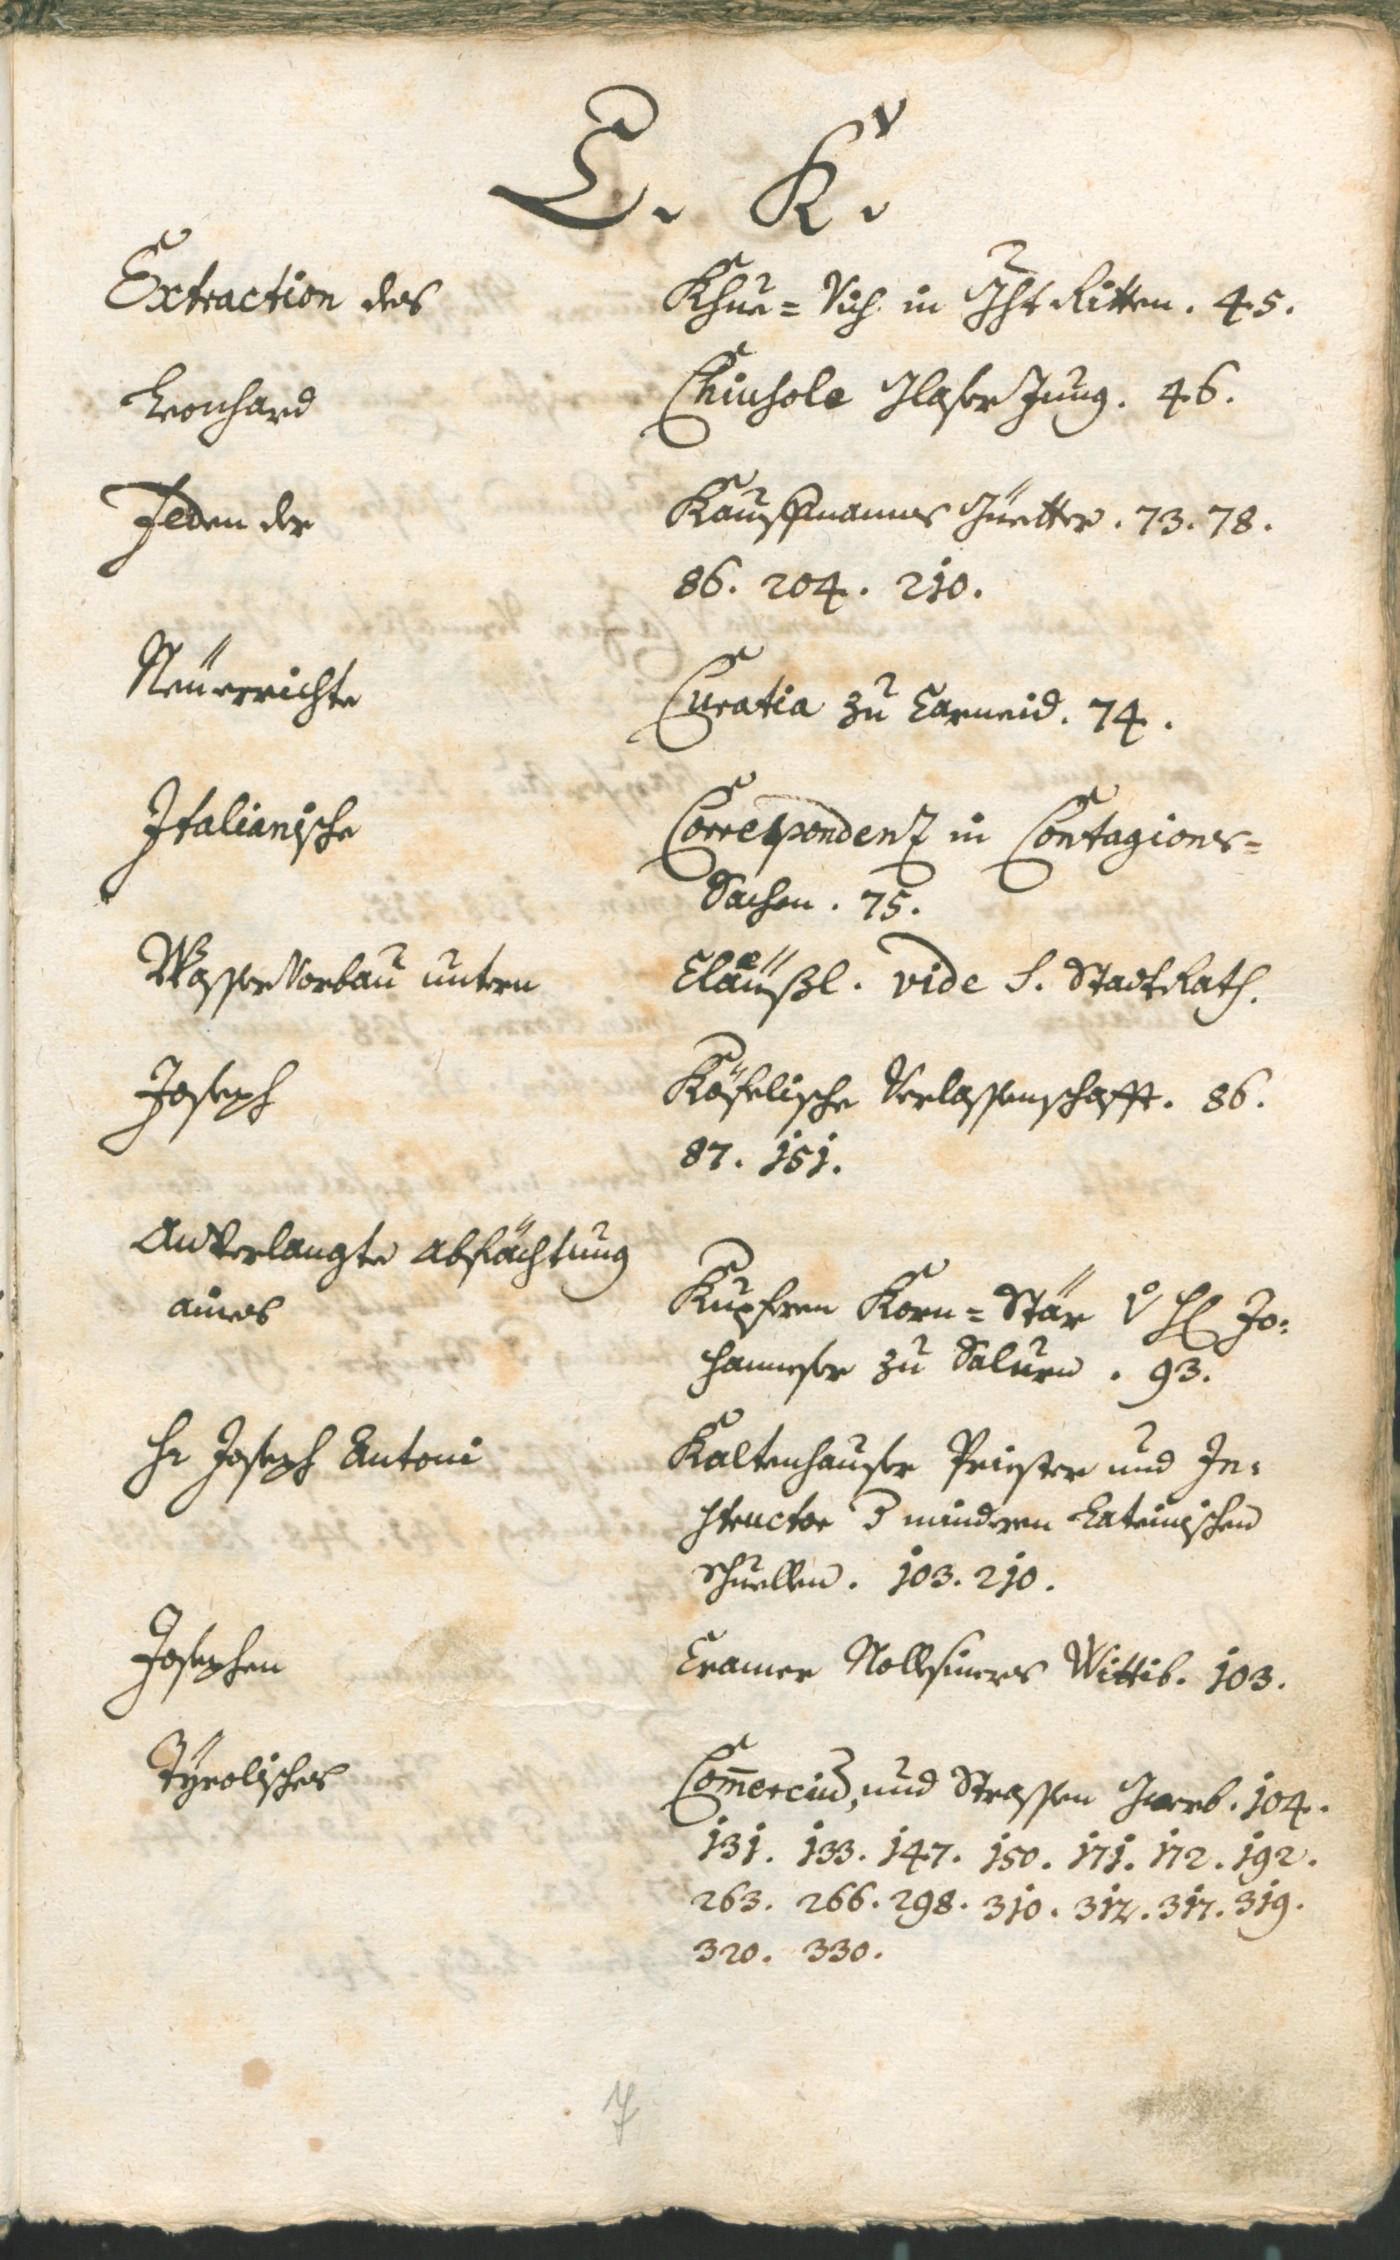 C. K.
Extraction des Khue= Vich in Ght Ritten. 45.
Leonhard Chiusole Glaser Jung. 46.
Jeden der Kauffmanns Güetter. 73. 78.
86. 204. 210.
Neüerrichte Curatia zu Carneid. 74.
Italianische Correspondenz in Contagions=
Sachen. 75.
Wasser Vorbau untern Cläußl. vide S. Stadt Rath.
Joseph Köfelische Verlassenschafft. 86.
87. 151.
Anverlangte Abfächtung
aines Kupfren Korn=Stär Jo=
hanneser zu Salurn. 93.
Hr Joseph Antoni Kaltenhauser Priester und In=
structor mindern Lateinischen
Schuellen. 103. 210.
Josephen Cramer Wittib. 103.
Tÿrolisches Com̄ercial, und Strassen 104.
131. 133. 147. 150. 171. 172. 192.
263. 266. 298. 310. 312. 317. 319.
320. 330.
7